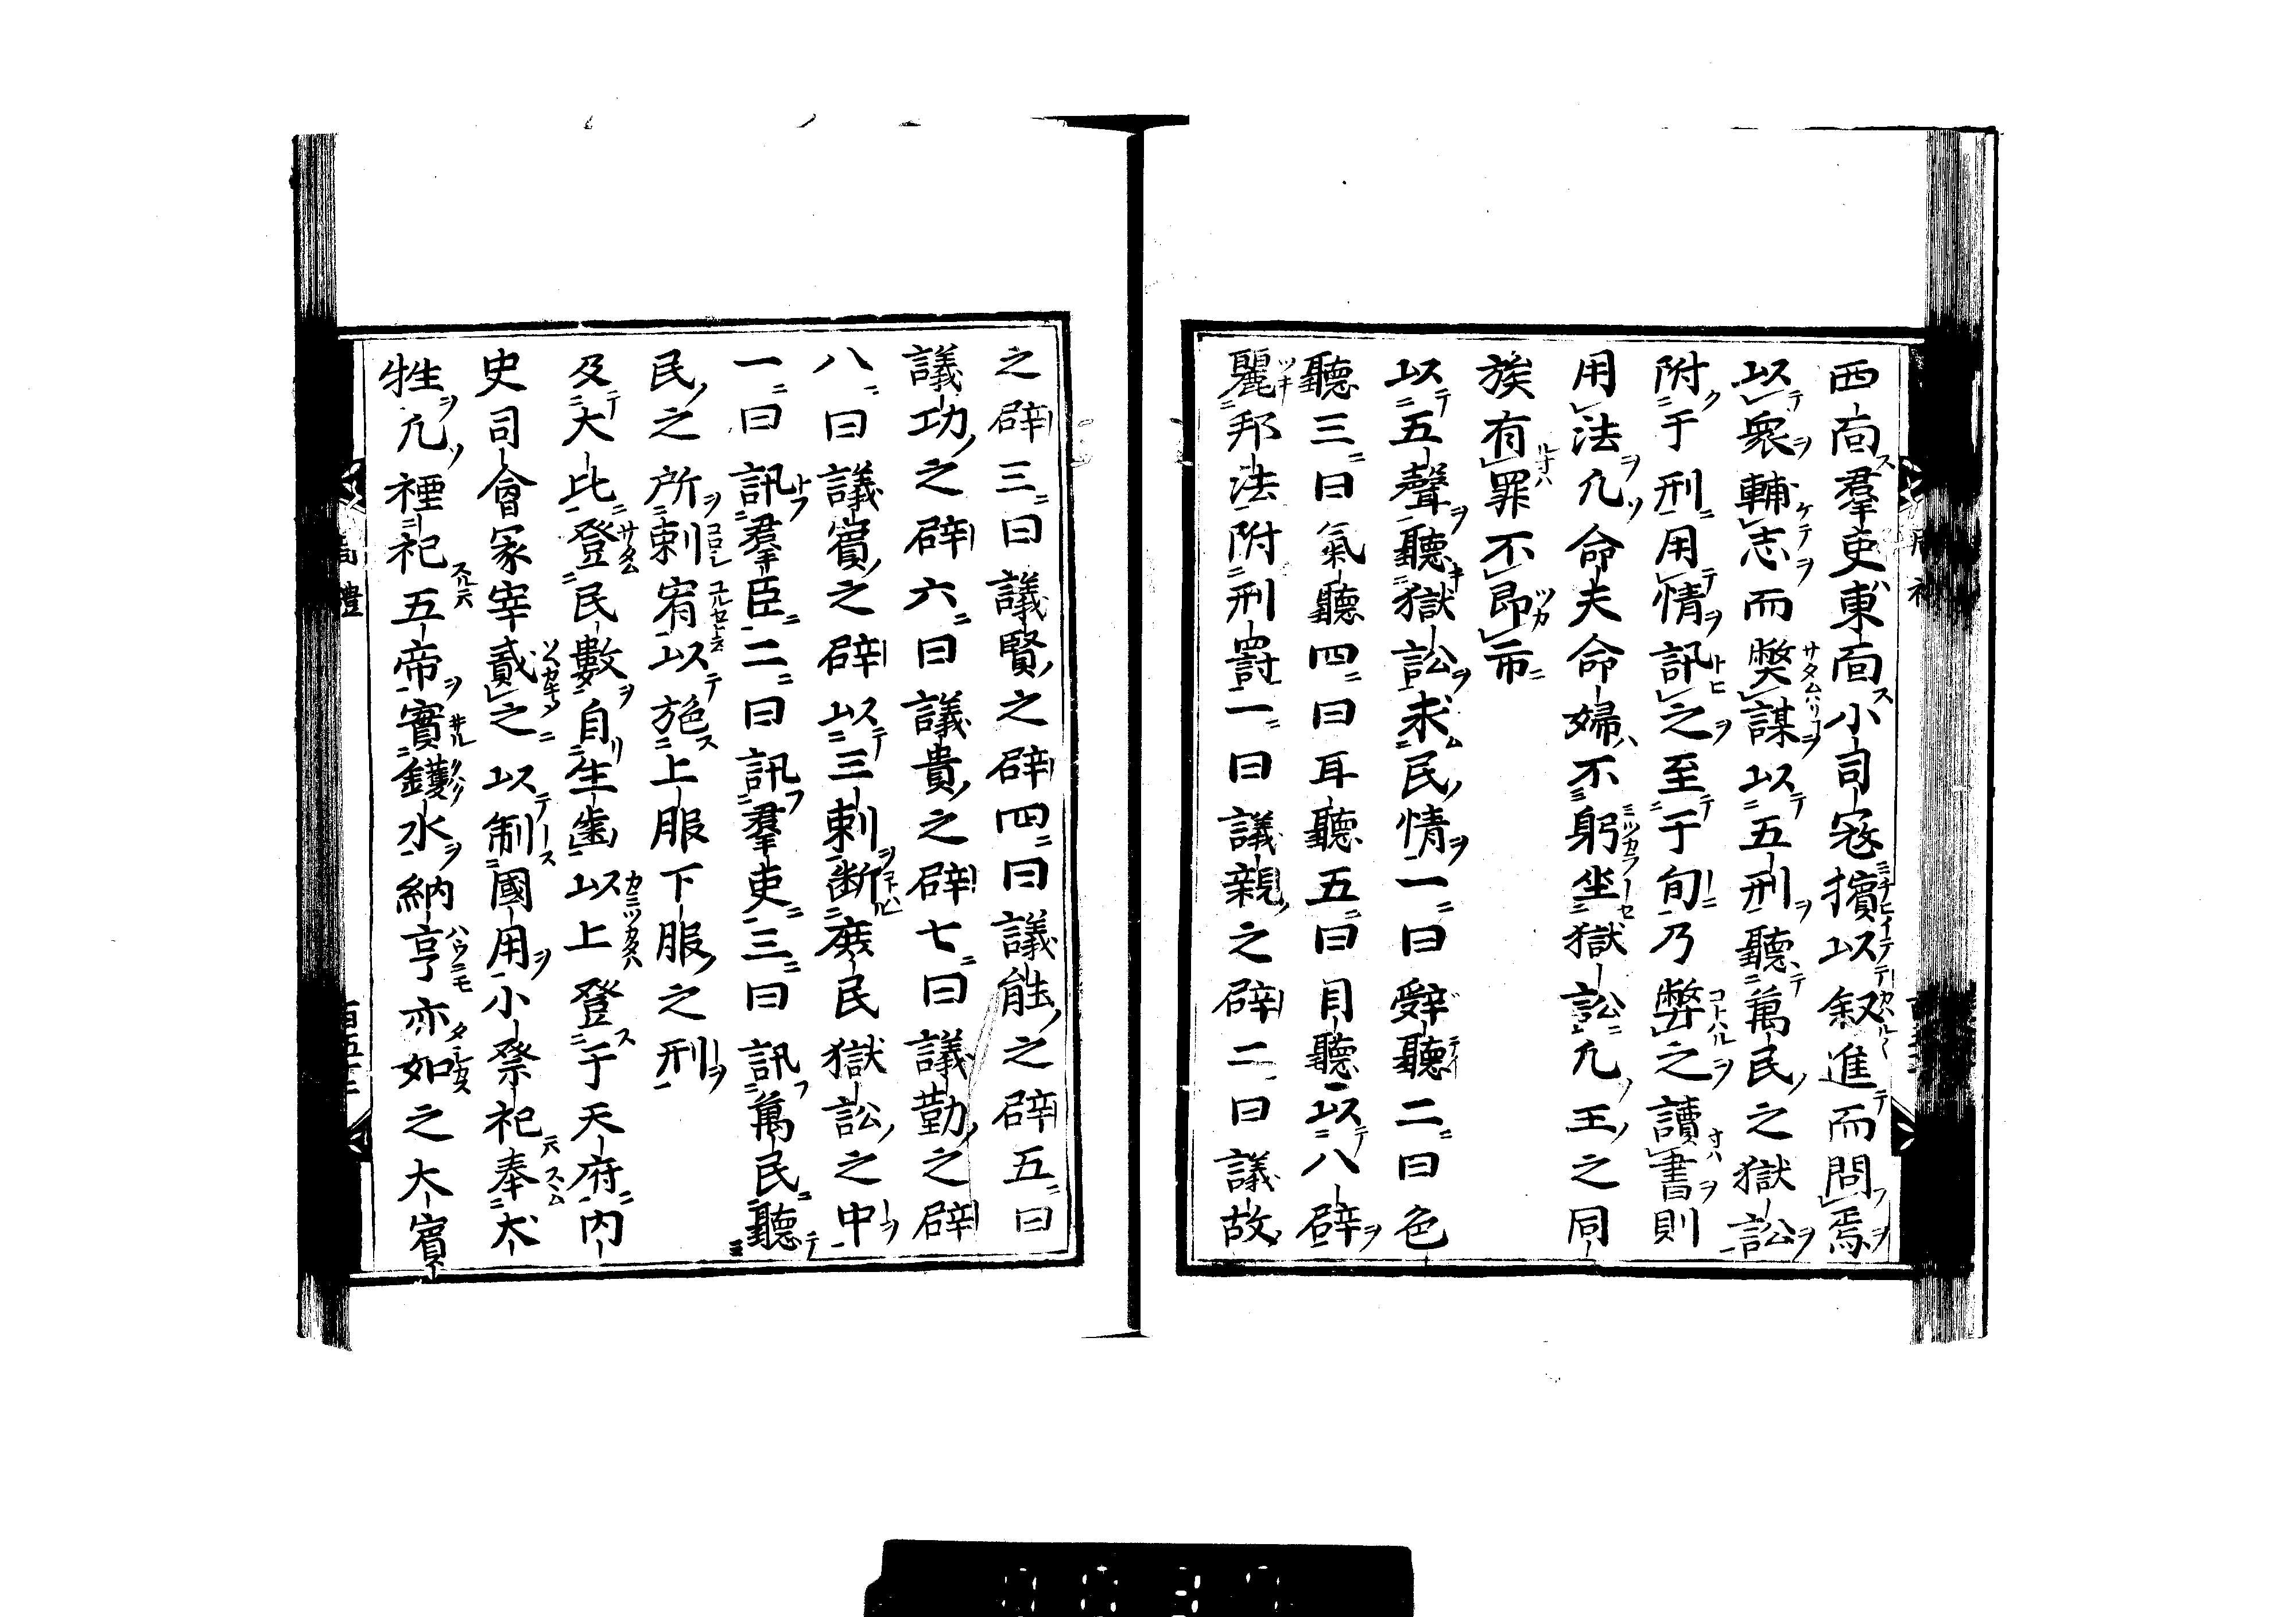 西面羣吏東面小司寇擯以叙進而問焉
以衆輔志而弊謀以五刑聽萬民之獄訟
附于刑用情訊之至于旬乃弊之讀書則
用法凢命夫命婦不躬坐獄訟凢王之同
族有罪不即市
以五聲聽獄訟求民情一曰辭聽二曰色
聽三曰氣聽四曰耳聽五曰目聽以八辟
麗邦法附刑罰一曰議親之辟二曰議故
之辟三曰議賢之辟四曰議能之辟五曰
議功之辟六曰議貴之辟七曰議勤之辟
八曰議賓之辟以三刺断庶民獄訟之中
一曰訊羣臣二曰訊羣吏三曰訊萬民聽
民之所刺宥以施上服下服之刑
及大比登民數自生齒以上登于天府内
史司會冢宰貳之以制國用小祭祀奉犬
牲凢禋祀五帝實鑊水納亨亦如之大賓